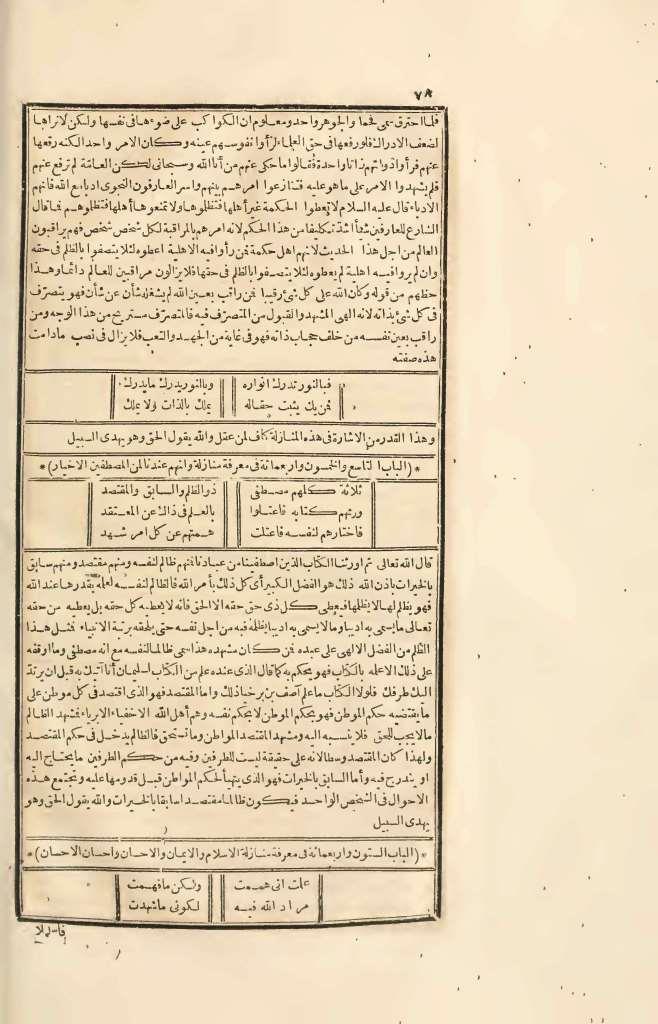 ٧٨
فلما احترق سمى فحما والجوهر واحد ومعلوم ان الكواكب على ضوءها فى نفسها ولكن لا نراها
لضعف الادراك فلو رفعها فى حق العلماء لرأوا نفوسهم عينه وكان الامر واحد الكنه رفعها
عنهم فرأوا ذواتهم ذاتا واحدة فقالوا ما حكى عنهم من أنا الله وسبحانى لكن العامة لم ترفع عنهم
فلم يشهدوا الامر على ما هو عليه فتنازعوا امرهم بينهم واسر العارفون النجوى ادبا مع الله فانهم
الادباء قال عليه السلام لا تعطوا الحكمة غير أهلها فتظلموها ولا تمنعوها أهلها فتظلوهم فما قال
الشارع للعارفين شيأ اشد تكليفا من هذا الحكم لانه امرهم بالمراقبة لكل شخص شخص فهم يراقبون
العالم من اجل هذا الحديث لانهم اهل حكمة فمن رأوا فيه الاهلية اعطوه لئلا يتصفوا بالظلم فى حقه
وان لم يروا فيه اهلية لم يعطوه لئلا يتصفوا بالظلم فى حقها فلا يزالون مراقبين للعالم دائما وهذا
حظهم من قوله وكان الله على كل شئ رقيبا فمن راقب بعين الله لم يشغله شأن عن شأن فهو يتصرف
فى كل شئ بذاته لانه الهى المشهد والقبول من المتصرف فيه فالمتصرف مستريح من هذا الوجه ومن
راقب بعين نفسه من خلف حجاب ذاته فهو فى غاية من الجهد والتعب فلا يزال فى نصب ما دامت
هذه صفته
فبالنور تدرك انواره وبالنور يدرك ما يدرك
فمن يك يثبت حقا له يملك بالذات او لا يملك
وهذا القدر من الاشارة فى هذه المنازلة كاف لمن عقل والله يقول الحق وهو يهدى السبيل
*(الباب التاسع والخمسون واربعمائة فى معرفة منازلة وانهم عندنا لمن المصطفين الاخيار)*
ثلاثة كلهم مصطفى ذو الظلم والسابق والمقتصد
ورثهم كتابه فاعتلوا بالعلم فى ذاك عن المعتقد
فاختارهم لنفسه فاعتلت همتهم عن كل امر شهد
قال الله تعالى ثم اورثنا الكتاب الذين اصطفينا من عبادنا فمنهم ظالم لنفسه ومنهم مقتصد ومنهم سابق
بالخيرات باذن الله ذلك هو الفضل الكبير أى كل ذلك بأمر الله فالظالم لنفسه لعلمه بقدرها عند الله
فهو يظلم لها لا يظلمها فيعطى كل ذى حق حقه الا الحق فانه لا يعطيه كل حقه بل يعطيه من حقه
تعالى ما يسمى به اديبا وما لا يسمى به اديبا يظلمه فيه من اجل نفسه حتى يلحقه برتبة الانبياء فمثل هذا
الظلم من الفضل الالهى على عبيده فمن كان مشهده هذا سمى ظالما لنفسه مع انه مصطفى وما اوقفه
على ذلك الا علمه بالكتاب فهو يحكم به كما قال الذى عنده علم من الكتاب لسليمان أنا آتيك به قبل ان يرتد
اليك طرفك فلولا الكتاب ما علم آصف بن برخيا ذلك واما المقتصد فهو الذى اقتصد فى كل موطن على
ما يقتضيه حكم الموطن فهو بحكم الموطن لا بحكم نفسه وهم أهل الله الاخفياء الابرياء فمشهد الظالم
ما لا يجب للحق فلا ينسبه اليه ومشهد المقتصد المواطن وما تستحق فالظالم يدخل فى حكم المقتصد
ولهذا كان المقتصد وسطا لانه على حقيقة ليست للطرفين وفيه من حكم الطرفين ما يحتاج اليه
او يندرج فيه وأما السابق بالخيرات فهو الذى يتهيأ لحكم المواطن قبل قدومها عليه وتجتمع هذه
الاحوال فى الشخص الواحد فيكون ظالما مقتصدا سابقا بالخيرات والله يقول الحق وهو
يهدى السبيل
*(الباب الستون واربعمائة فى معرفة منازلة الاسلام والايمان والاحسان واحسان الاحسان)*
علمت انى هممت ولكن ما فهمت
مراد الله فيه لكونى ما شهدت